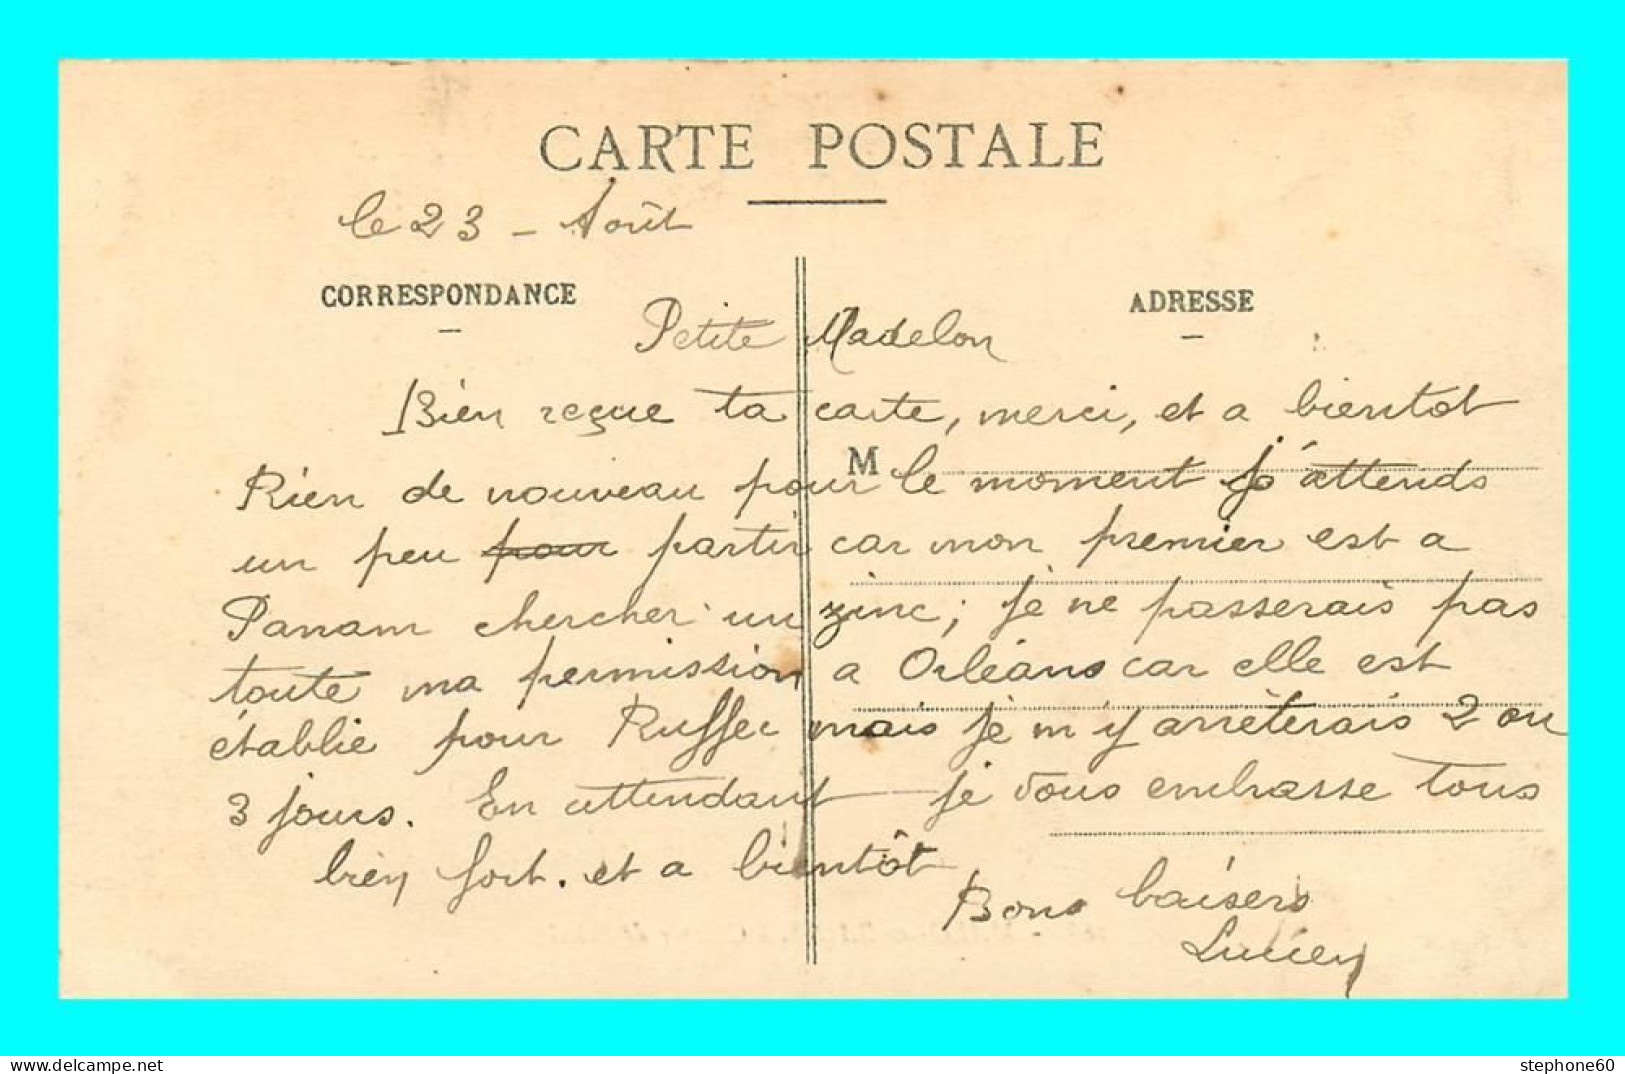 CARTE POSTALE
le 23 - Août
CORRESPONDANCE
ADRESSE
Petite Madelon
Bien reçue ta carte, merci, et a bientot
M
Rien de nouveau pour le moment j'attends
un peu pour partir car mon premier est a
Panam chercher un zinc; je ne passerais pas
toute ma permission a Orléans car elle est
établie pour Ruffec mais je m'y arrèterais 2 ou
3 jours. En attendant je vous embrasse tous
bien fort. et a bientôt
Bons baisers
Lucien
stephone60